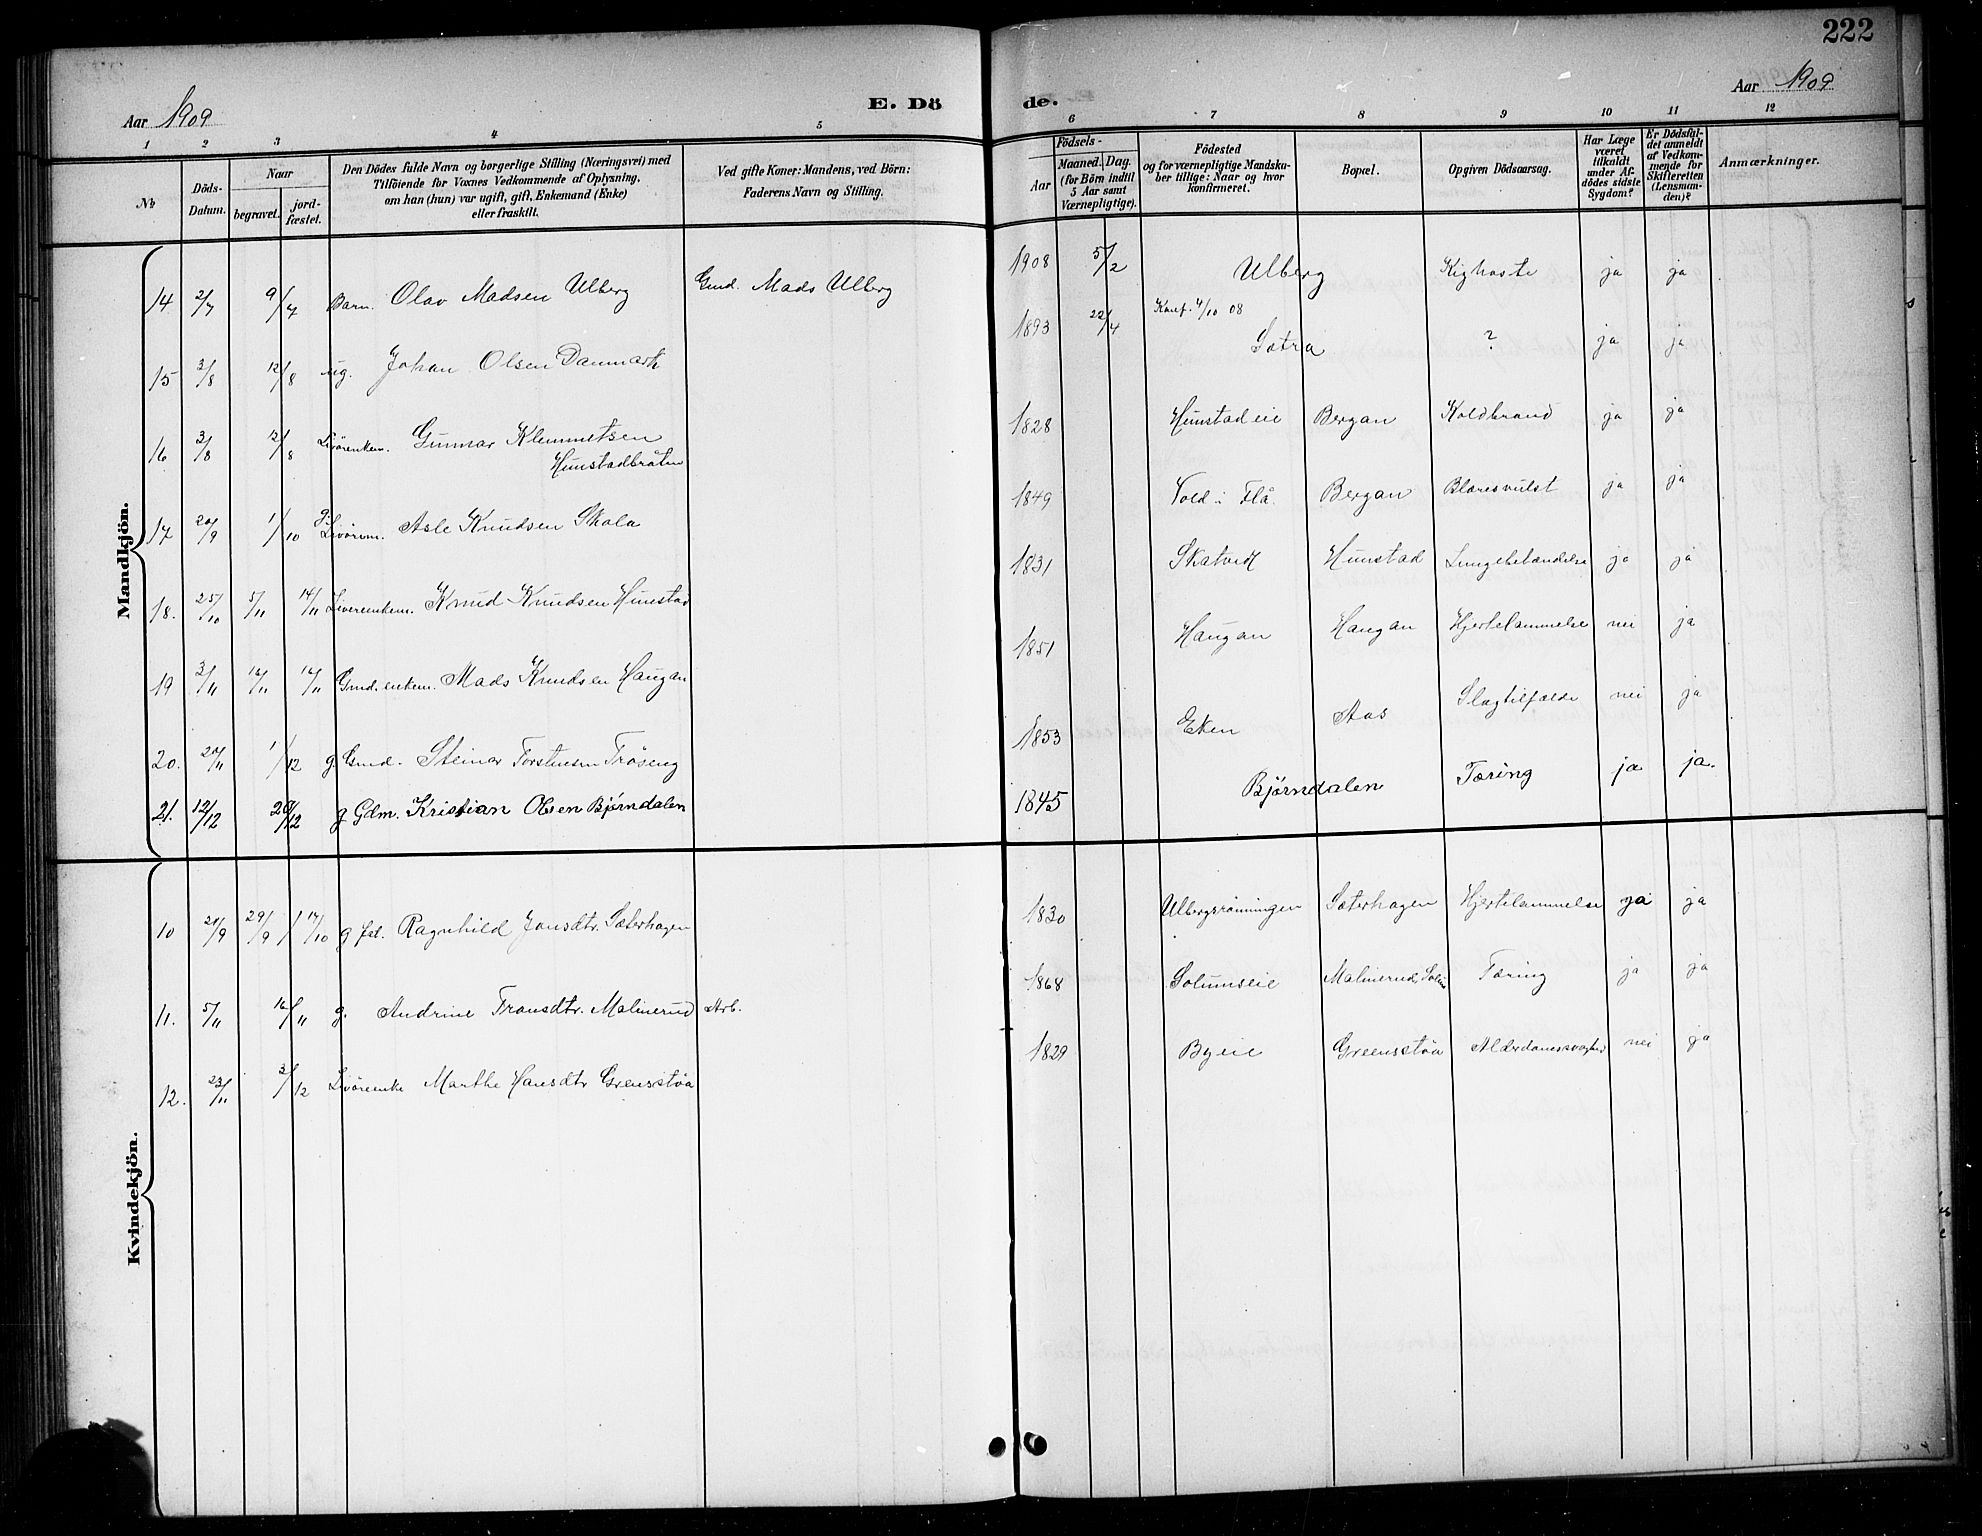 222
Aar 1909
E. Dö
de.
Aar 1909
1 2 3 4 5 6 7 8 9 10 11 12
№
Döds-
Datum.
Naar
begravet.
jord-
fæstet.
Den Dödes fulde Navn og borgerlige Stilling (Næringsvei) med
Tilföiende for Voxnes Vedkommende af Oplysning,
om han (hun) var ugift, gift, Enkemand (Enke)
eller fraskilt.
Ved gifte Koner: Mandens, ved Börn:
Faderens Navn og Stilling.
Födsels-
Aar
Maaned. Dag.
(for Börn indtil
5 Aar samt
Værnepligtige).
Födested
og for værnepligtige Mandska-
ber tillige: Naar og hvor
konfirmeret.
Bopæl.
Opgiven Dödsaarsag.
Har Læge
været
tilkaldt
under Af-
dödes sidste
Sygdom?
Er Dödsfal-
det anmeldt
af Vedkom-
mende for
Skifteretten
(Lensman-
den)?
Anmærkninger.
Mandkjön.
14. 2/7 9/7 Barn. Olav Madsen Ulberg Gmd. Mads Ulberg 1908 5/2 Ulberg Kighoste ja ja
15 3/8 12/8 ug. Johan Olsen Danmark 1893 22/4 Konf. 4/10 08
Sætra ? ja ja
16 3/8 12/8 Livörenkem. Gunnar Klemmetsen
Hunstadbråten 1828 Hunstadeie Bergan Koldbrand ja ja
17 20/9 1/10 Livörem. Asle Knudsen Skola 1849 Vold i Flå. Bergan Blæresvulst ja ja
18. 25/10 5/11 14/11 Liverenkem. Knud Knudsen Hunstad 1831 Hunstad Lungebetændelse ja ja
19 3/11 14/11 Gmd. enkem. Mads Knudsen Haugan 1851 Haugan Haugan Hjertelammelse nei ja
20. 20/11 1/12 g. Gmd. Steinar Torstensen Tröseng 1853 Eken Aas Slagtilfælde nei ja
21. 12/12 20/12 g Gdm. Kristian Olsen Bjørndalen 1845 Bjørndalen Tæring ja ja.
Kvindekjön.
10 21/9 29/9 17/10 g fsl. Ragnhild Jonsdtr. Sæterhagen 1830 Ulbergsrönningen Sæterhagen Hjertelammelse ja ja
11. 5/11 16/11 g. Andrine Fransdtr. Malinerud Arb. 1868 Solumseie Malinerud, Tæring ja ja
12. 23/11 3/12 Livörenke Marthe Hansdtr Grensstöa 1829 Byeie Greensstöa Alderdomssvaghed nei ja